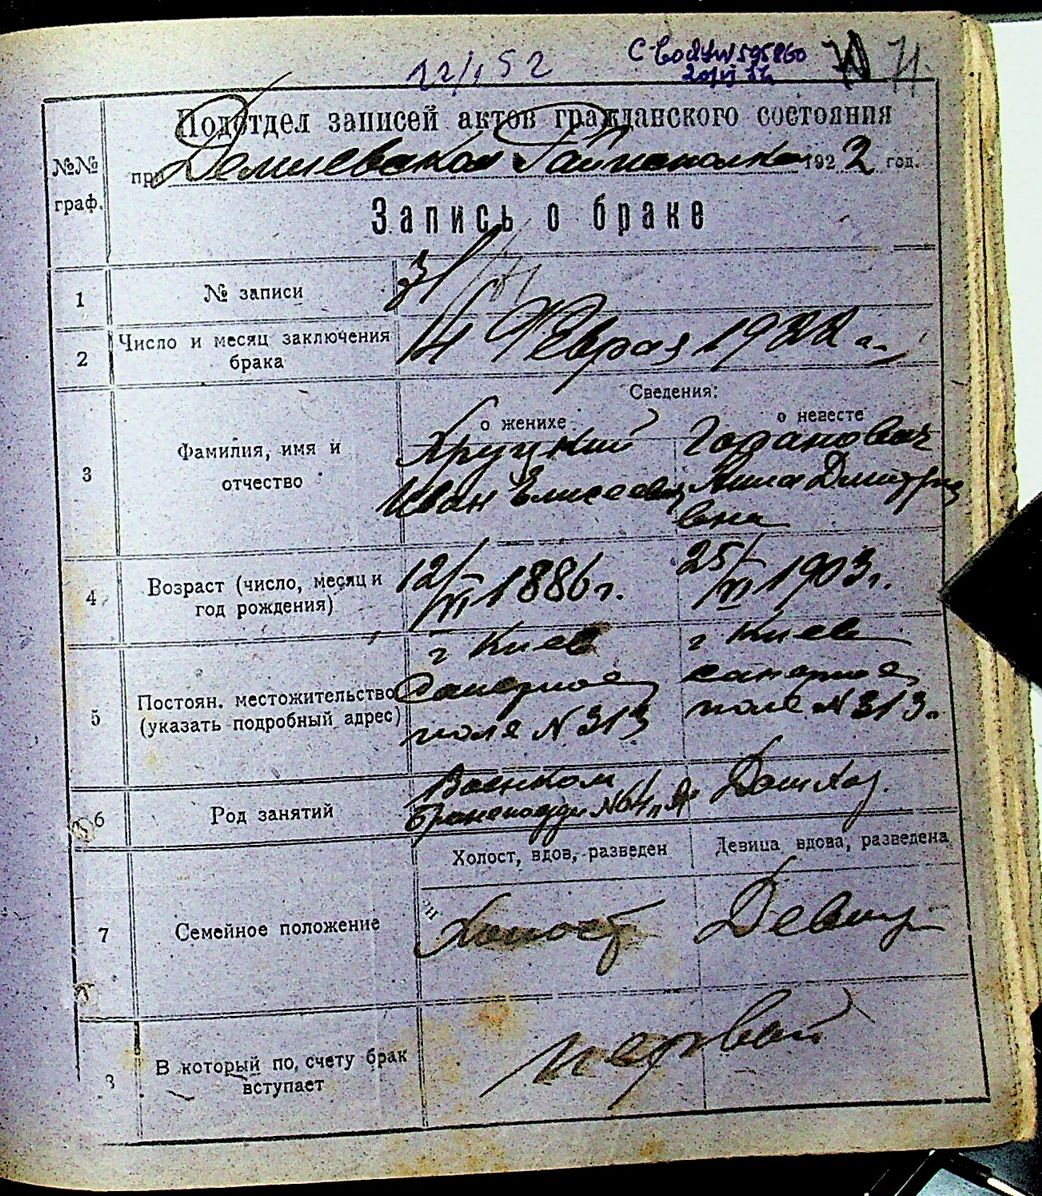 12/I 52
71.
Подотдел записей актов гражданского состояния
№№ граф.
при Демиевском Райисполкоме 1922 год.
Запись о браке
1 № записи 71
2 Число и месяц заключения брака
14 Февраля 1922 г.
Сведения:
о женихе о невесте
3 Фамилия, имя и отчество
Хруцкий
Иван Елисеевич
Анна Дмитри
евна
4 Возраст (число, месяц и год рождения)
12/VI 1886 г. 25/VI 1903 г.
5 Постоян. местожительство (указать подробный адрес)
г Киев г Киев
Саперное саперное
поле N 313 поле N 313.
6 Род занятий
Военком Дом. Хоз.
N 64
Холост, вдов, разведен Девица вдова, разведена
7 Семейное положение
Холост Девица
8 В который по, счету брак вступает
первый